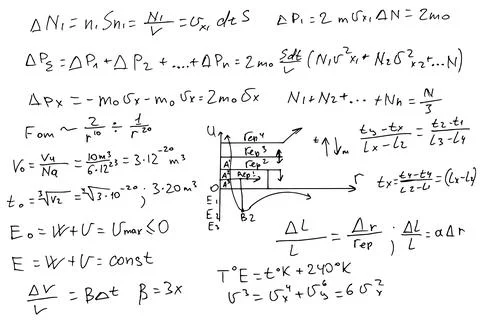 ΔN₁ = n₁Sn₁ = N₁/V = υx₁ dt S
ΔP₁ = 2 mυx₁ΔN = 2m₀
ΔPΣ = ΔP₁ + ΔP₂ + .... + ΔPn = 2m₀ Sdt/V (N₁υ²x₁ + N₂υ²x₂+...N)
ΔPx = -m₀υx - m₀υx = 2m₀υx
N₁ + N₂ +... + Nn = N/3
Fom ~ 2/r¹⁰ ÷ 1/r²⁰
V₀ = Vч/Na = 10m³/6·12²³ = 3·12⁻²⁰ m³
t₀ = ³√V₂ = ³√3·10⁻²⁰ ; 3·20m³
E₀ = W + U = Umax ≤ 0
E = W + U = const
ΔV/V = BΔt β = 3x
U
rep⁴
rep³
A rep²
rep¹
O
r
E₁
E₂
E₃
B2
t m
ty - tx / Lx - L2 = t2 - t1 / L3 - L4
tx = tx - t4 / L2 - L1 = (Lx - L2)
ΔL/L = Δr/rep ; ΔL/L = αΔr
T°E = t°K + 240°K
υ³ = υx⁴ + υy⁶ = 6υx²